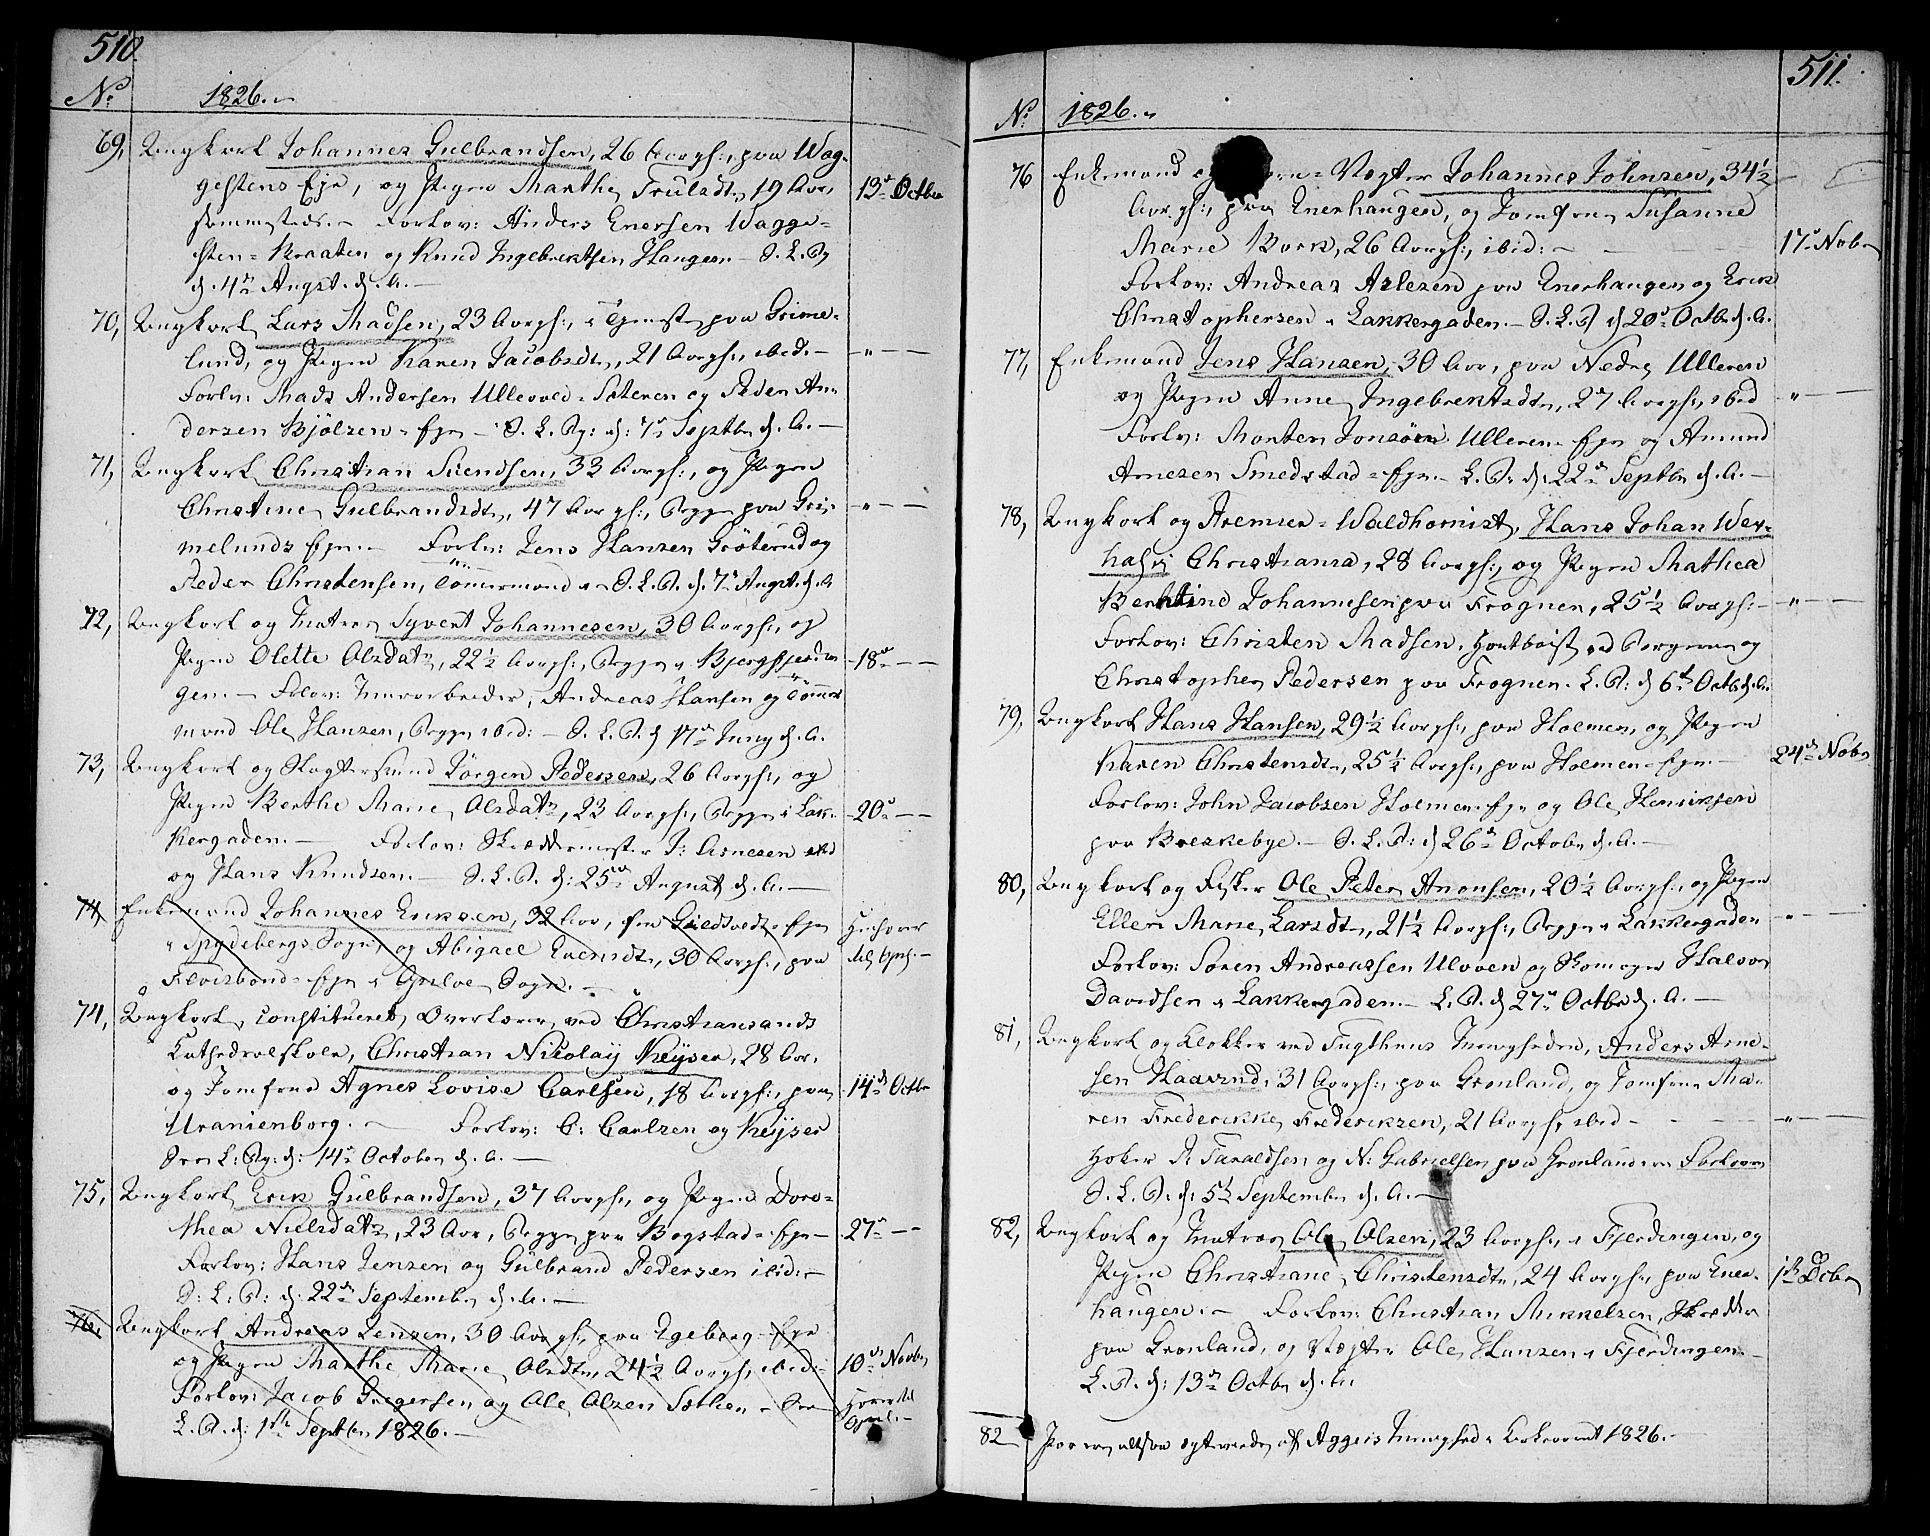 510.
No. 1826.
69, Ungkarl Johannes Gulbrandsen, 26 Aar gl:, paa Wag-
gestens Eje, og Pigen Marthe Trulsdtr, 19 Aar, 13de Octbr
sammesteds. Forlov: Anders Enersen Wagge-
sten-Braaten og Knud Ingebrektsen Haugen - S. L. B
d. 4de Augst. d. A. -
70, Ungkarl Lars Madsen, 23 Aar gl:, i Tjeneste paa Grime-
lund, og Pigen Karen Jacobsdtr, 21 Aar gl:, ibid. - - " - -
Forlov: Mads Andersen Ullevold-Sæteren og Peder An-
dersen Bjølsen-Eje - S. L. B: d: 7de Septbr d. A. -
71, Ungkarl Christian Svendsen, 33 Aar gl:, og Pigen
Christine Gulbrandsdtr, 47 Aar gl:, Begge paa Gri- - " - -
melunds Eje. - Forlov: Jens Hansen Grøterud og
Peder Christensen, Tømmermand - S. L. B. d. 7de Augst. d. A
72, Ungkarl og Matros Syvert Johannesen, 30 Aar gl:, og
Pigen Olette Olsdatr, 22½ Aar gl:, Begge i Bjergfjerdin- - 18de - -
gen. - Forlov: Murarbeider, Andreas Hansen og Tømmer-
mand Ole Hansen, Begge ibid: - S. L. B. d 17de Juny d. A.
73, Ungkarl og Slagtersvend Jørgen Pedersen, 26 Aar gl:, og
Pigen Berthe Marie Olsdatr, 23 Aar gl:, Begge i Lak- - 20de - -
kergaden. - Forlov: Skræddermester J: Arnesen ibid
og Hans Knudsen. - S. L. B. d: 25de August d. A. -
74 Enkemand Johannes Ericksen, 32 Aar, fra Eje
i Spydebergs Sogn, og Abigael Evensdtr, 30 Aar gl:, paa
Eje i Sogn. -
74, Ungkarl, constitueret Overlærer, ved Christiansands
Cathedralskole, Christian Nikolay Keyser, 28 Aar,
og Jomfrue Agnes Lovise Carlsen, 18 Aar gl:, paa 14de Octbr
Uranienborg. - Forlov: C: Carlsen og Keyser
L: B: d: 14de October d. A. -
75, Ungkarl Erik Gulbrandsen, 37 Aar gl:, og Pigen Doro-
thea Nielsdatr, 23 Aar, Begge paa Bogstad-Eje - 27de - -
Forlov: Hans Jensen og Gulbrand Pedersen ibid: -
S: L: B: d: 22de September d. A. -
76. Ungkarl Andreas Jensen, 30 Aar gl:, paa Egeberg-Eje
og Pigen Marthe Marie Olsdtr, 24½ Aar gl:, ibid: - 10de Novbr
Forlov: Jacob Gregersen og Ole Olsen Sæther -
L. B. d: 1ste Septbr 1826. -
511.
No. 1826.
76 Enkemand og -Vægter Johannes Johnsen, 34½ -
Aar gl:, paa Enerhaugen, og Jomfrue Susanne
Marie Bork, 26 Aar gl:, ibid: - 17de Nobr
Forlov: Andreas Aslesen paa Enerhaugen og Erik
Christophersen i Lakkergaden. - S. L. B d 20de Octbr d. A.
77, Enkemand Jens Hansen, 30 Aar, paa Nedre Ulleren
og Pigen Anne Ingebrektsdtr, 27 Aar gl:, ibid - " -
Forlov: Morten Jonsøn Ulleren-Eje og Amund
Arnesen Smedstad-Eje. - L. B. d: 22de Septbr d. A. -
78, Ungkarl og Waldhornist, Hans Johan War-
Christiania, 28 Aar gl:, og Pigen Mathea
Berntine Johannesen paa Frogner, 25½ Aar gl: - - " -
Forlov: Christen Madsen, Houtboist og
Christopher Pedersen paa Frogner. L. B: d 6te Octb d. A.
79, Ungkarl Hans Hansen, 29½ Aar gl:, paa Holmen, og Pigen
Karen Christensdtr, 25½ Aar gl:, paa Holmen-Eje. - 24de Nobr
Forlov: John Jacobsen Holmen-Eje og Ole Henriksen
paa Breskebye. - S. L. B: d 26de Octobr d. A. -
80, Ungkarl og Fisker Ole Peter Anonsen, 20½ Aar gl:, og Pigen
Ellen Marie Larsdtr, 21½ Aar gl:, Begge i Lakkergaden - " -
Forlov: Søren Andreassen Ulven og Skomager Halvor
Davidsen i Lakkergaden. - L. B. d 27de Octbr d. A. -
81, Ungkarl og Klokker ved Tugthuus Menigheden, Anders Arne-
sen Haavind, 31 Aar gl:, paa Grønland, og Jomfrue Ma-
ren Frederikke Frederiksen, 21 Aar gl:, ibid - - " -
Høker P. Taraldsen og N: Gabrielsen paa Grønland ere Forlovere
S. L. B. d. 5te September d. A. -
82, Ungkarl og Matros Ole Olsen, 23 Aar gl:, i Fjerdingen, og
Pigen Christiane Christensdtr, 24 Aar gl:, paa Ener- 1ste Debr
haugen. - Forlov: Christian Mikkelsen, Skrædder
paa Grønland, og Vægter Ole Hansen i Fjerdingen -
L. B. d: 13de Octbr d. A.
82 Par ere altsaa ægteviede af Aggers Menighed i Kirkeaaret 1826. -